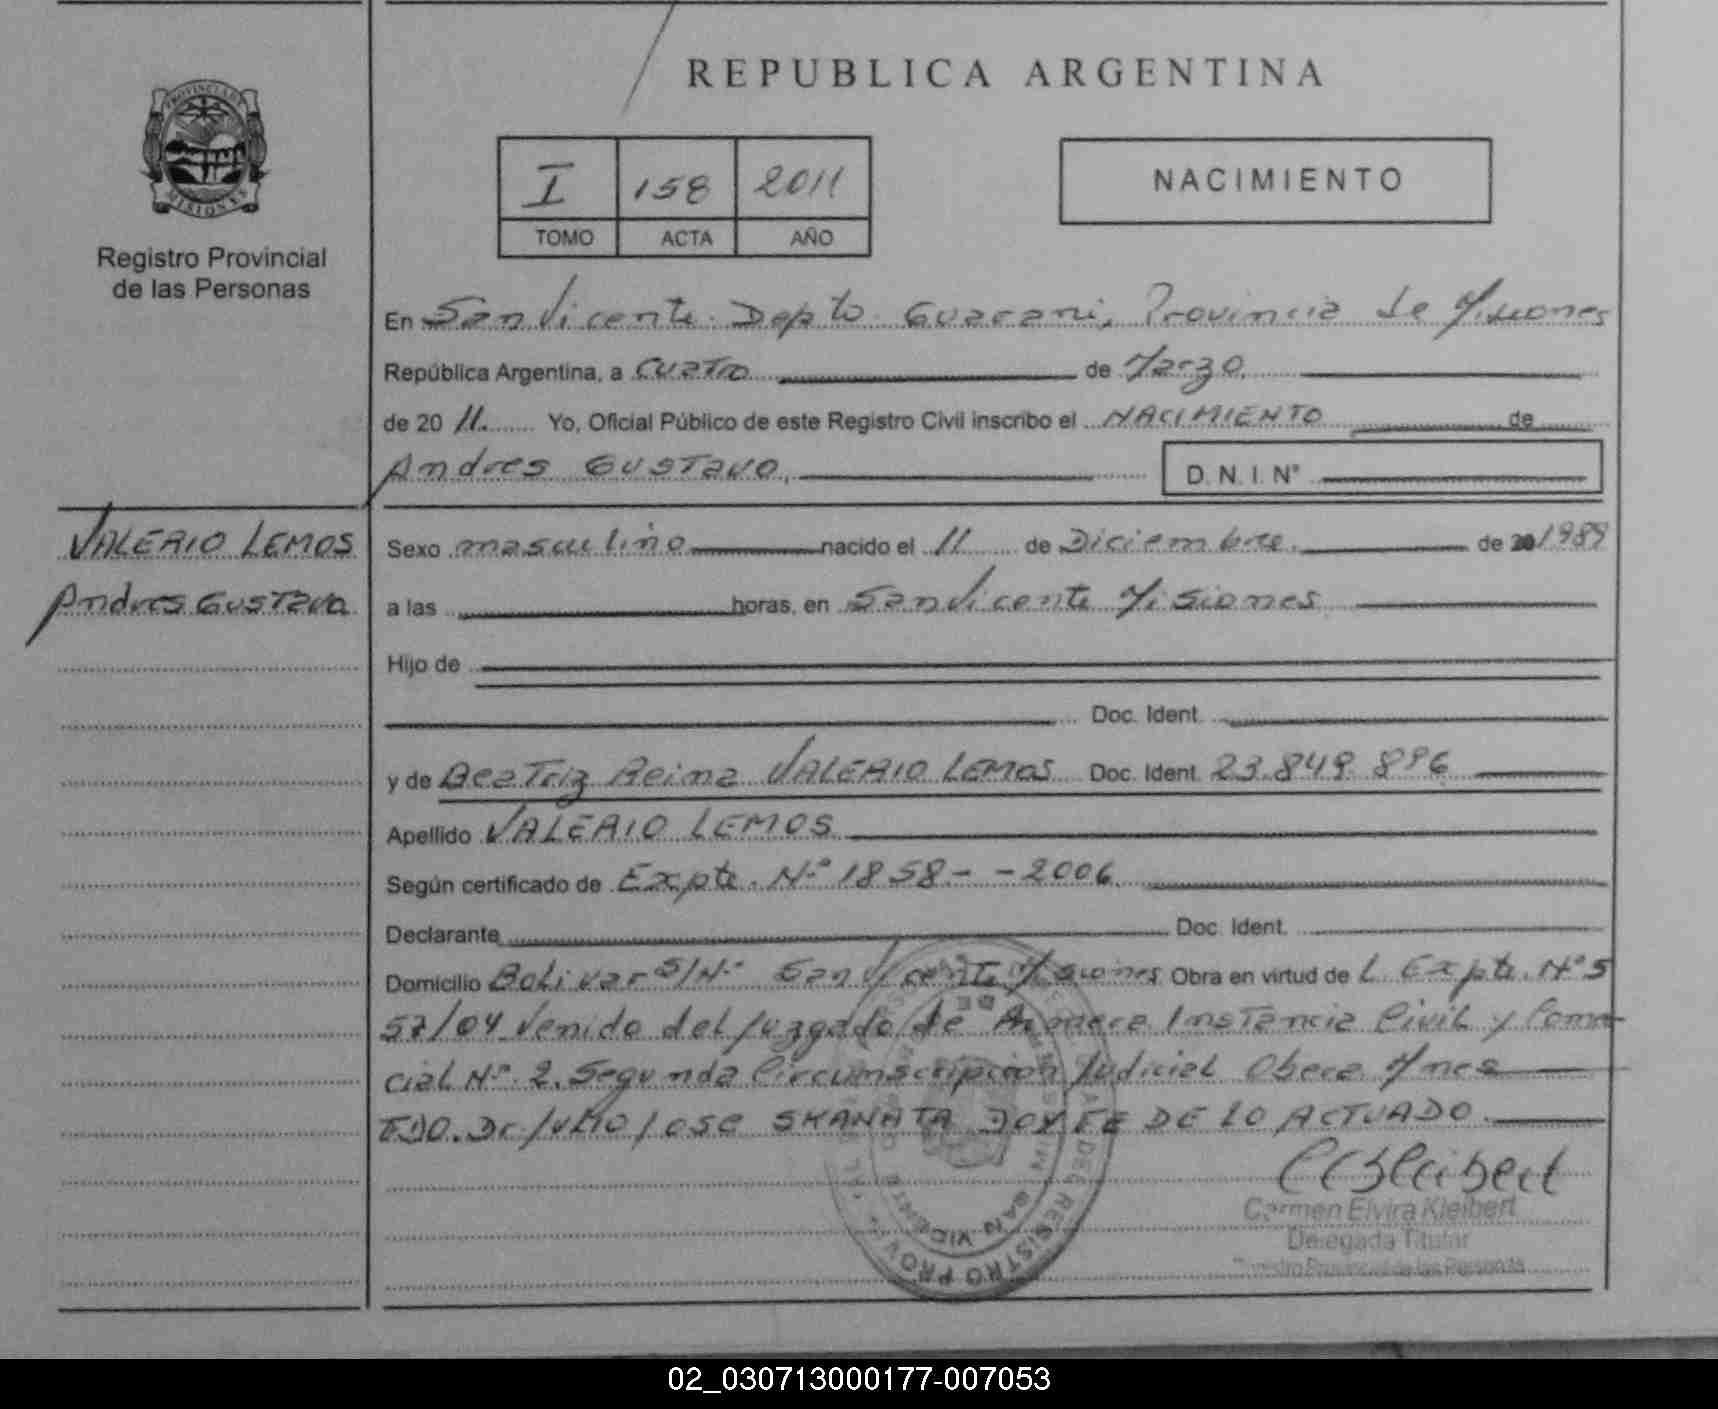 REPUBLICA ARGENTINA
PROVINCIA DE MISIONES
Registro Provincial
de las Personas
I 158 2011
TOMO ACTA AÑO
NACIMIENTO
En San Vicente Depto Guarani, Provincia de Misiones
República Argentina, a cuatro de Marzo
de 20 11. Yo, Oficial Público de este Registro Civil inscribo el NACIMIENTO de
Andres Gustavo, D. N. I. N°
VALERIO LEMOS
Andres Gustavo
Sexo masculino nacido el 11 de Diciembre de 20 1989
a las horas, en San Vicente Misiones
Hijo de
Doc. Ident.
y de Beatriz Reina VALERIO LEMOS Doc. Ident. 23.849.896
Apellido VALERIO LEMOS
Según certificado de Expte. N° 1858 - - 2006
Declarante Doc. Ident.
Domicilio Bolivar S/N° San Vicente Misiones Obra en virtud de L. Expte. N° 5
57/04 Venido del Juzgado de Primera Instancia Civil y Comer
cial N° 2. Segunda Circunscripcion Judicial Obera Mnes
FDO. Dr. JULIO JOSE SKANATA DOY FE DE LO ACTUADO.
Carmen Elvira Kleibert
Delegada Titular
Registro Provincial de las Personas
SAN VICENTE
02_030713000177-007053